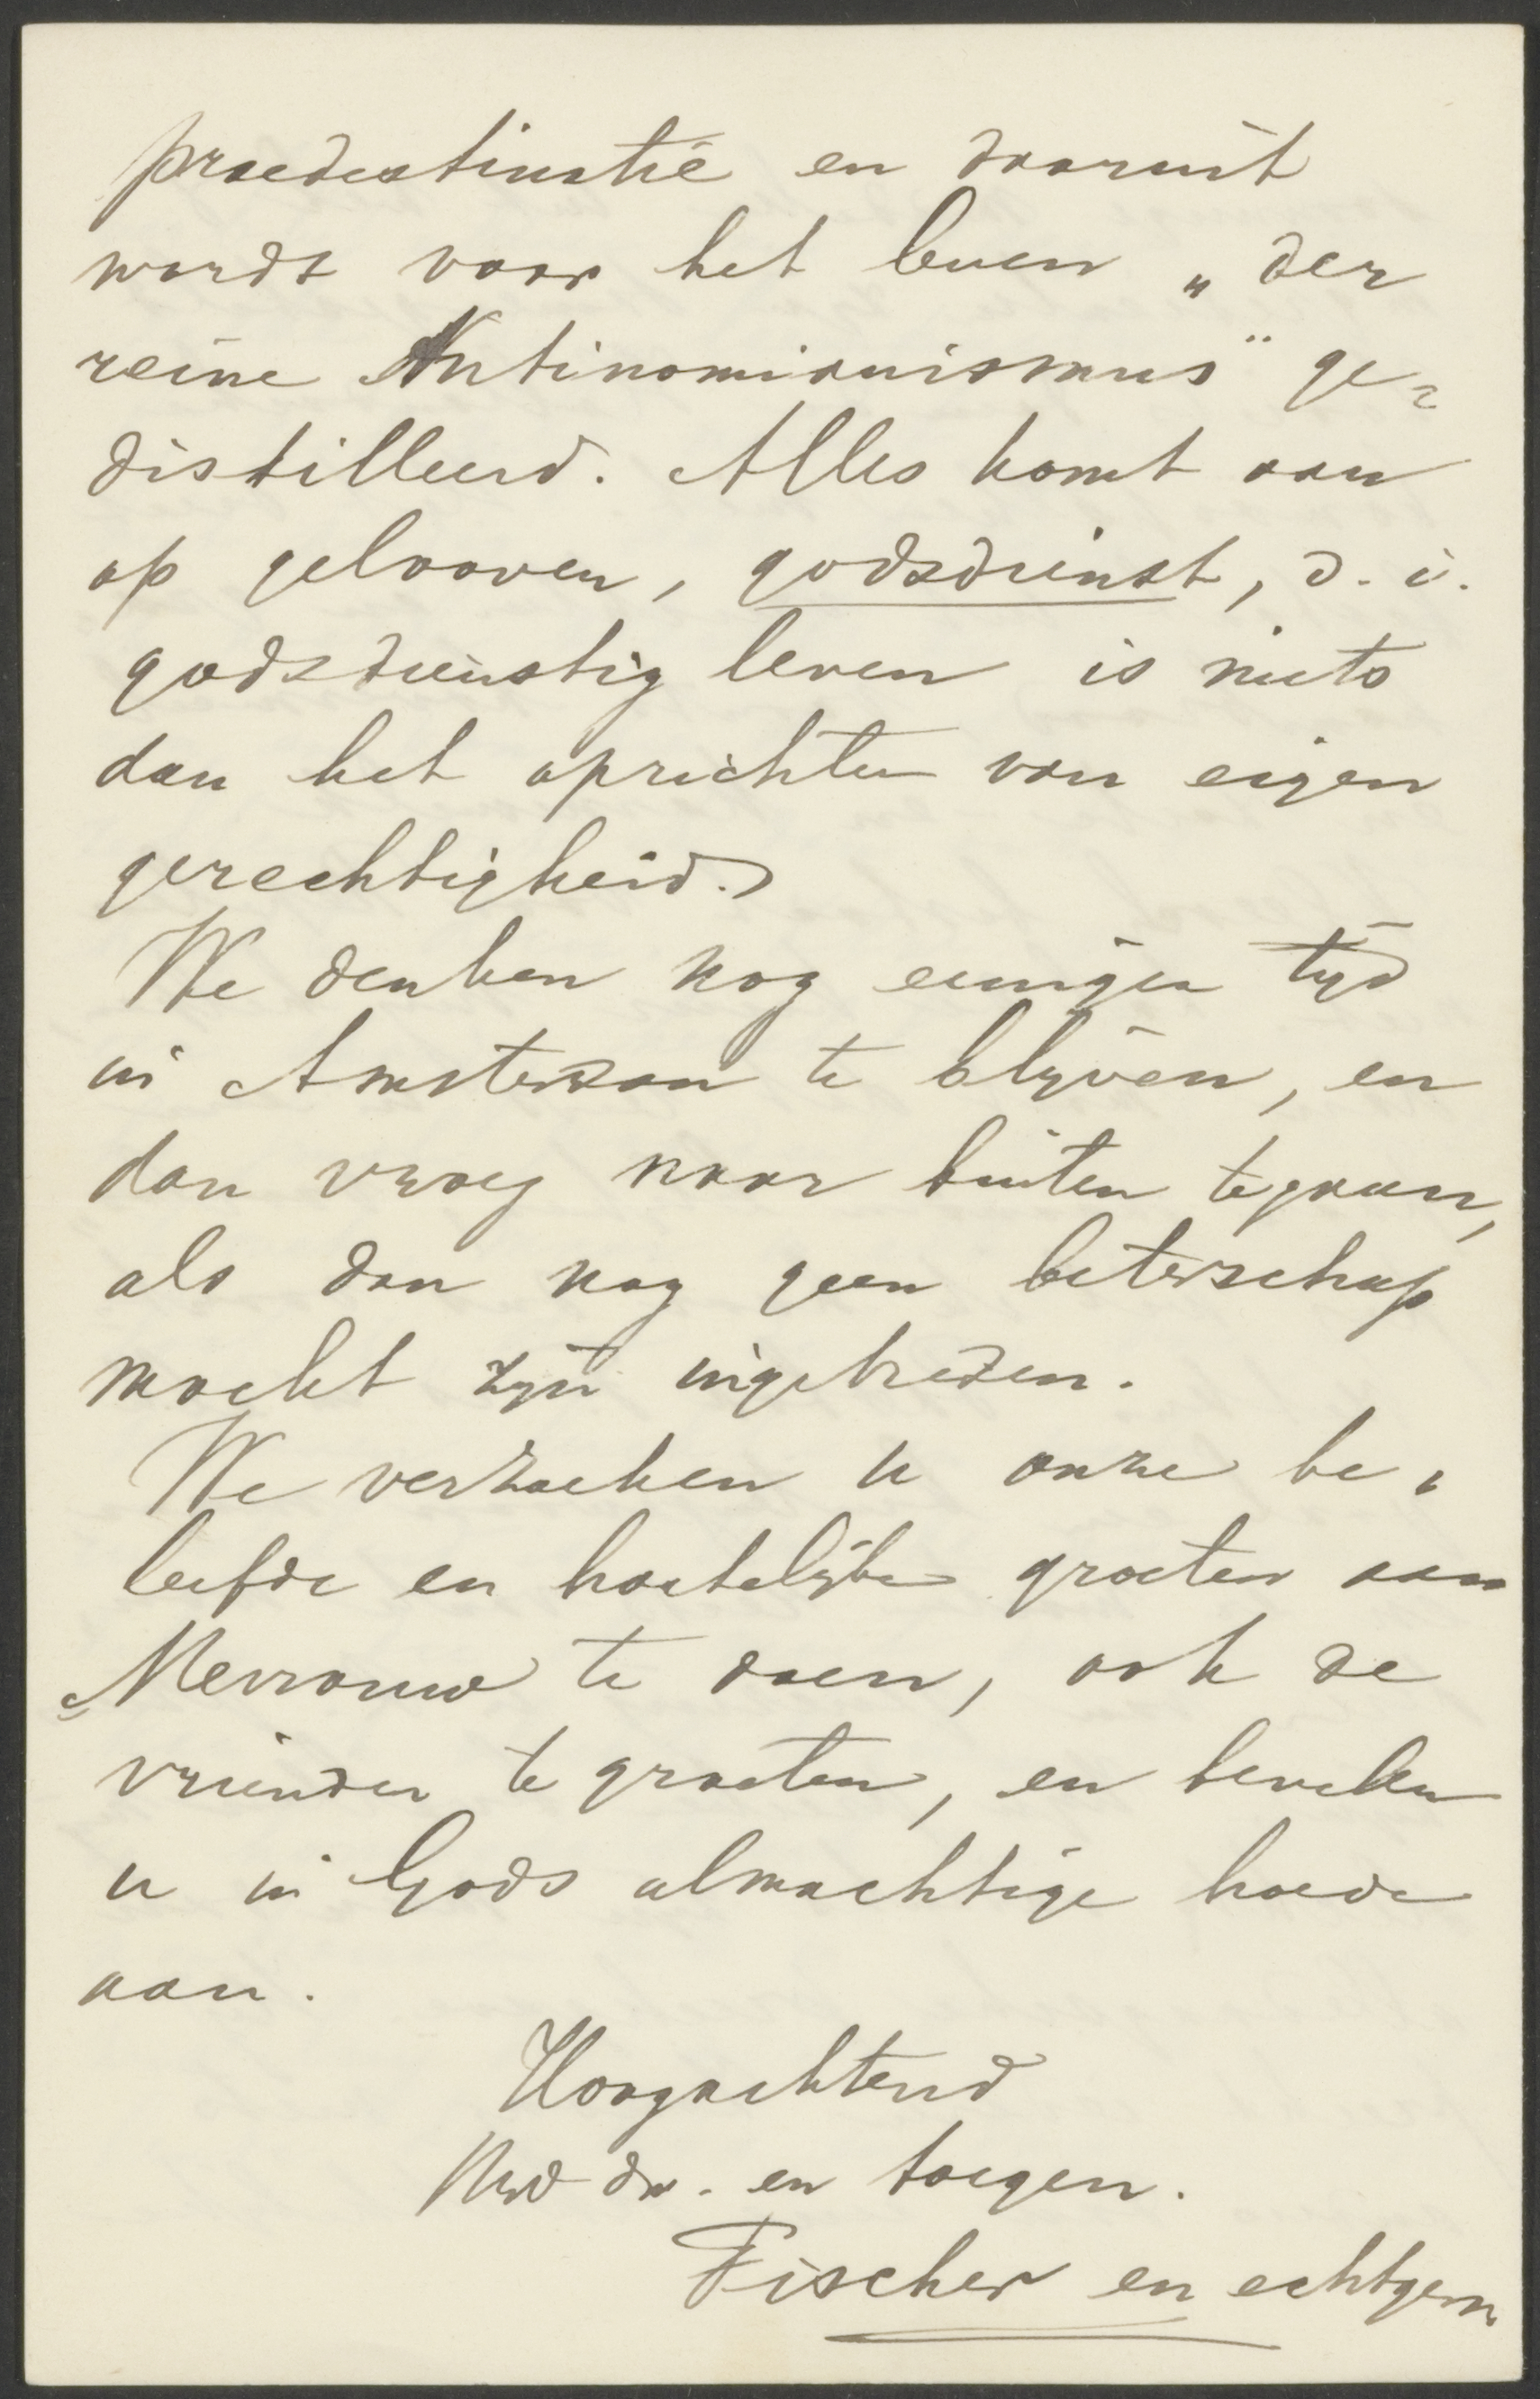 praedestinatie en daaruit
wordt voor het leven „der
reine Antinomianismus" ge-
distilleerd. Alles komt aan
op gelooven, godsdienst, d. i.
godsdienstig leven is niets
dan het oprichten van eigen
gerechtigheid.
We denken nog eenigen tijd
in Amsterdam te blijven, en
dan vroeg naar buiten te gaan,
als dan nog geen beterschap
mocht zijn ingetreden.
We verzoeken u onze be-
leefde en hartelijke groeten aan
Mevrouw te doen, ook de
vrienden te groeten, en bevelen
u in Gods almachtige hoede
aan.
Hoogachtend
Uw dw. en toegen.
Fischer en echtgen.